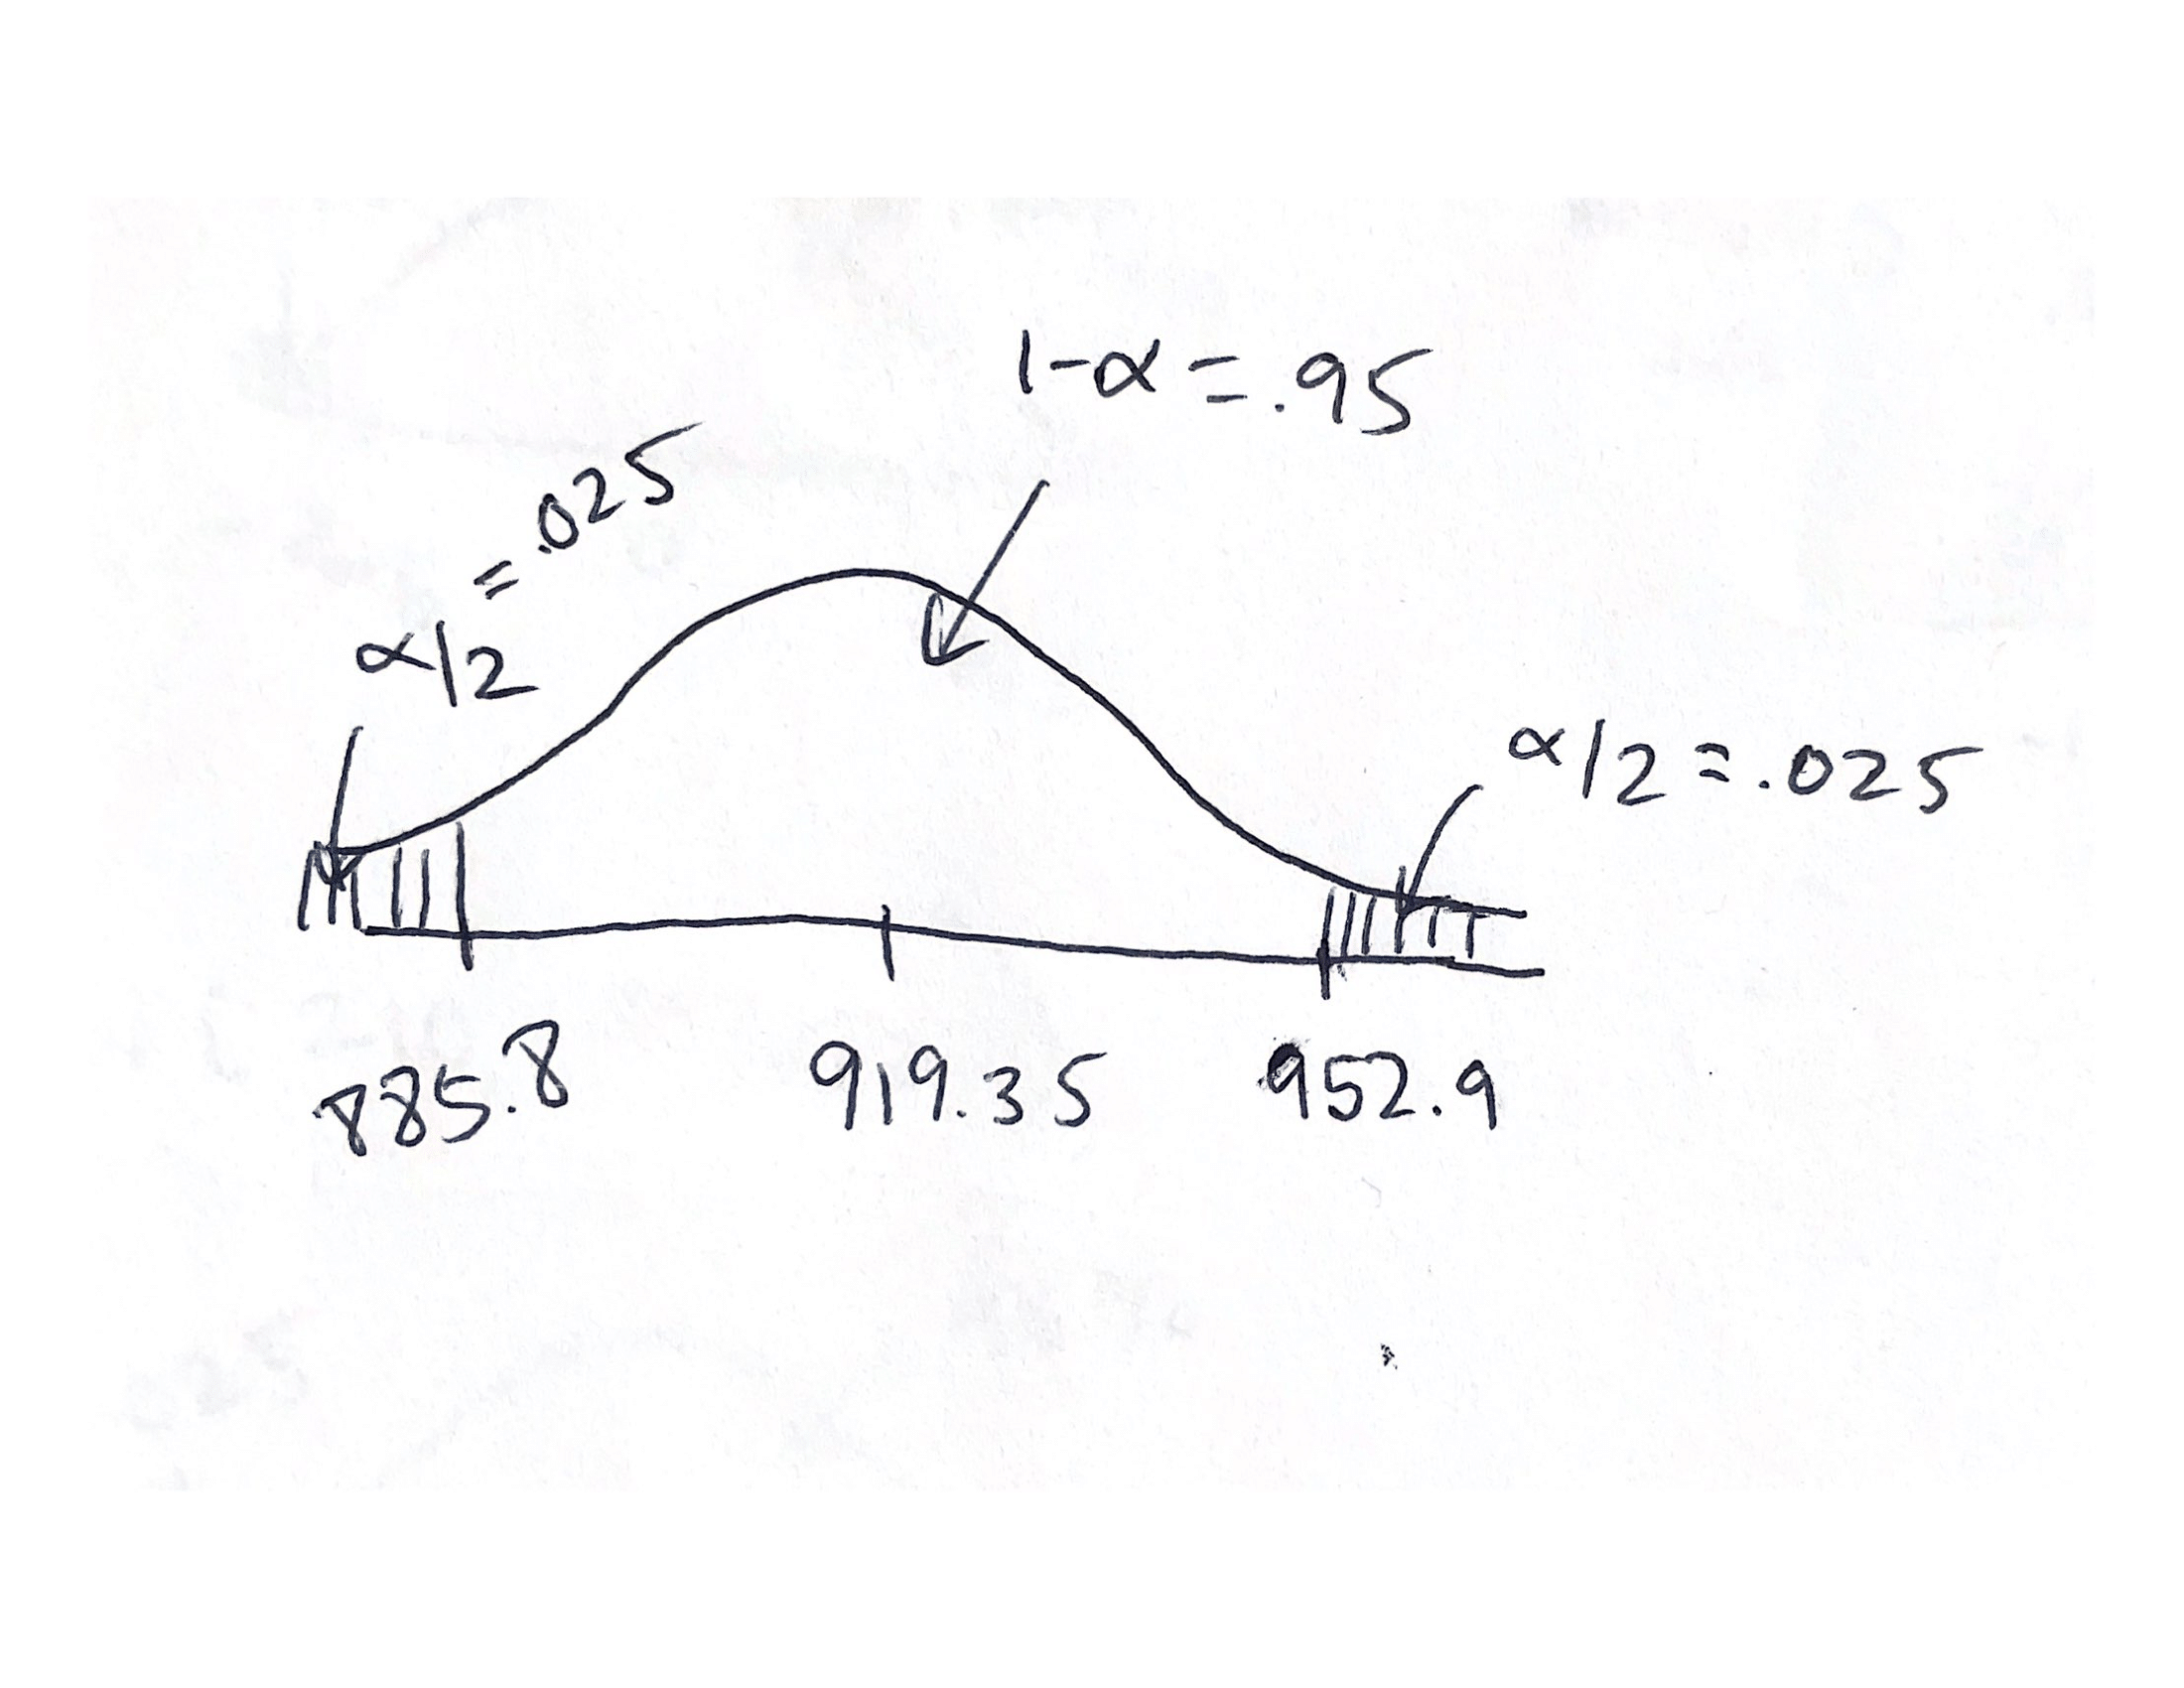 1-α = .95
α/2 = .025
α/2 = .025
885.8 919.35 952.9